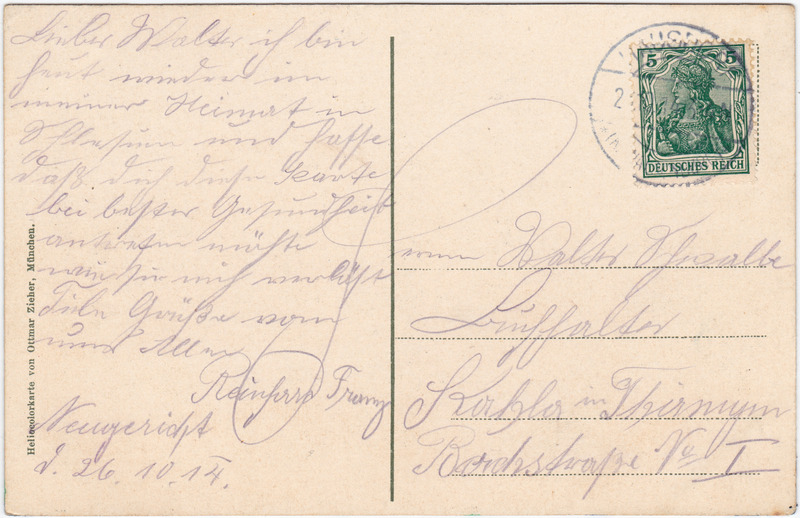 Lieber Walter ich bin
heut wieder in
meiner Heimat in
Schlesien und hoffe
daß dich diese Karte
bei bester Gesundheit
antrefen möhte
mich verläßt
Fiele Grüße vom
uns Allen
Reinhard Franz
Neugericht
d. 26. 10. 14.
Heliocolorkarte von Ottmar Zieher, München.
5 5
DEUTSCHES REICH
Herrn Walter Schwalbe
Buchhalter
Kahla in Thüringen
Bachstraße No I